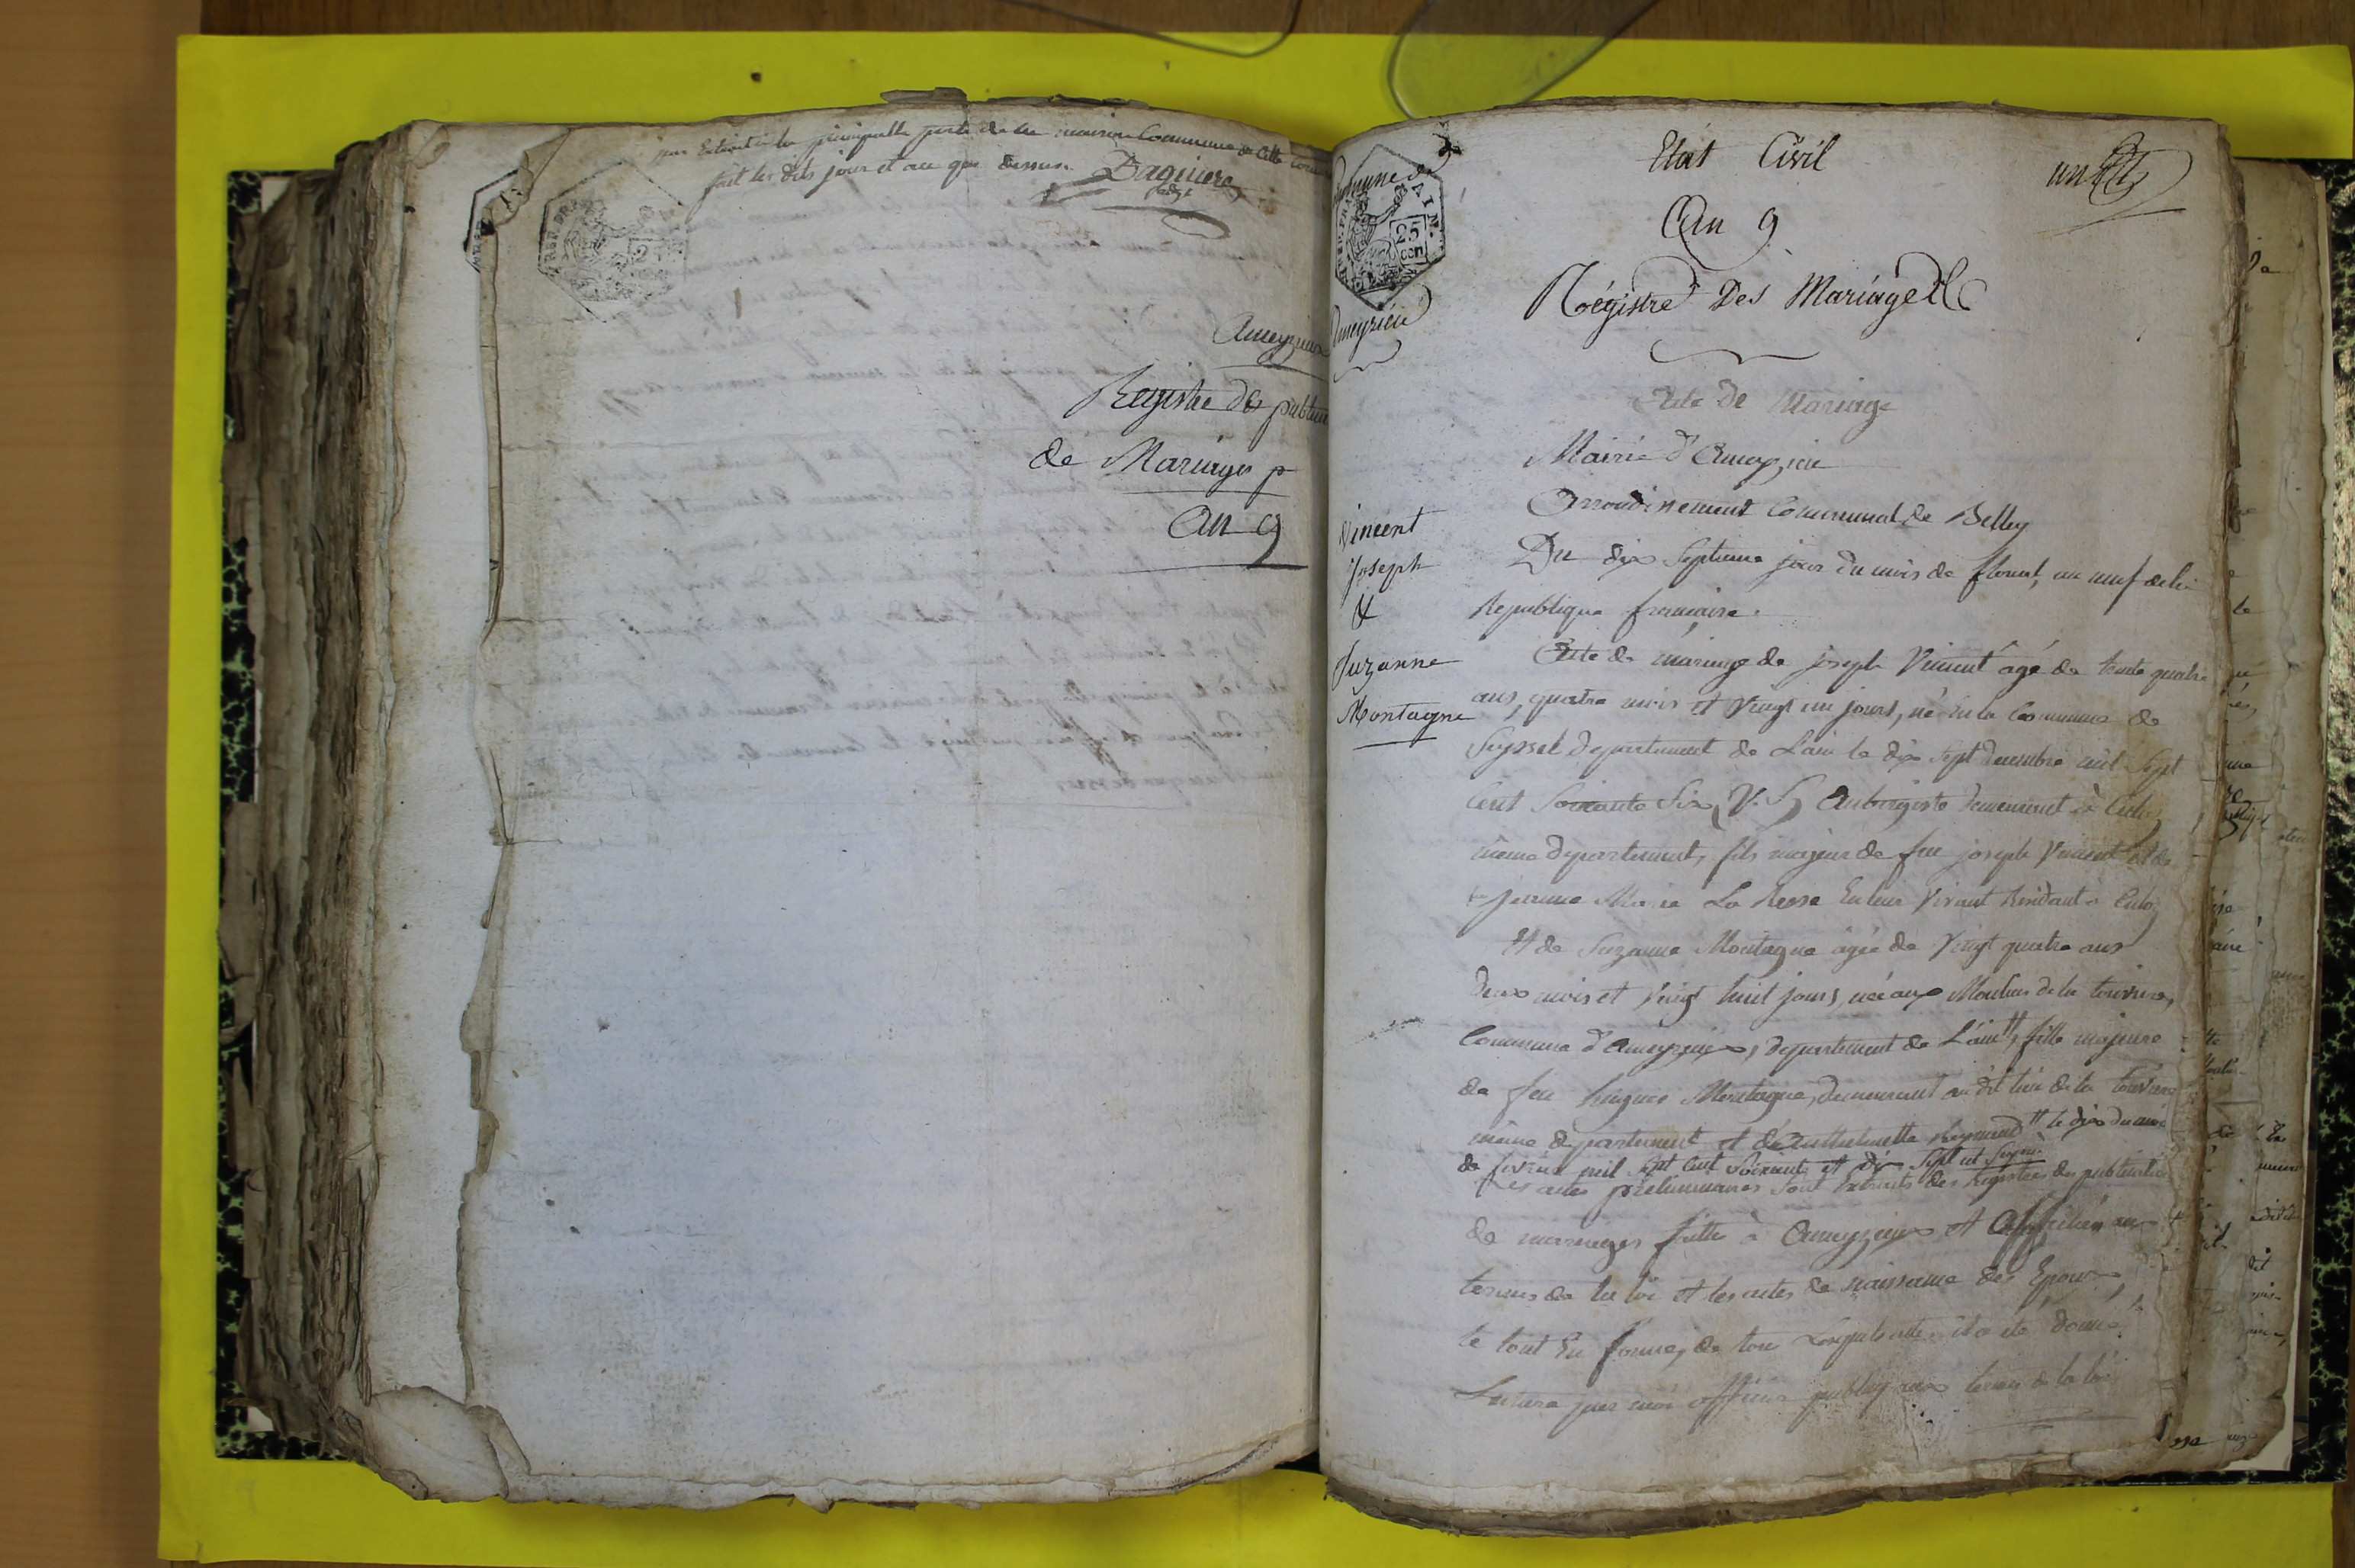 par Extrait à la principalle porte de la maison Commune de Cette Com
fait les dits jour et an que dessus. Daguiere
Ameyzieu
Registre des publica
de Mariages p
An 9
Commune d
25
cen
AIN.
Ameyzieu
Etat Civil
An 9
Régistre Des Mariages
un
Acte De Mariage
Mairie d'Ameyzieu
Arrondissement Communal de Belley
Vincent
Joseph
&
Suzanne
Montagne
Du dix Septieme jour du mois de floreal, an neuf de la
Republique française.
Acte de mariage de joseph Vincent âgé de trente quatre
ans, quatre mois et Vingt un jours, né en la Commune de
Seyssel departement de L'ain le dix Sept decembre mil Sept
Cent Soixante Six (V. S) Aubergiste demeurant à Culoz
même departement, fils majeur de feu joseph Vincent et de
jeanne Marie La Resse En leur Vivant Residant à Culoz
Et de Suzanne Montagne âgée de Vingt quatre ans
Deux mois et Vingt huit jours, née aux Moulins de la
Commune d'Ameyzieux, departement de L'ain #, fille majeure
de feu hugues Montagne, demeurant au dit lieu de la
même departement et d'Anthelmette Reymond # le dix du mois
de fevrier mil Sept Cent Soixante et Dix Sept
Les actes préliminaires Sont Extraits des Registres des publications
de mariages faittes à Ameyzieux et Affichées aux
termes de la loi et les actes de naissance des Epoux
le tout En forme, de tous Lesquels actes il a été donné
Lecture par moi officier public aux termes de la loi